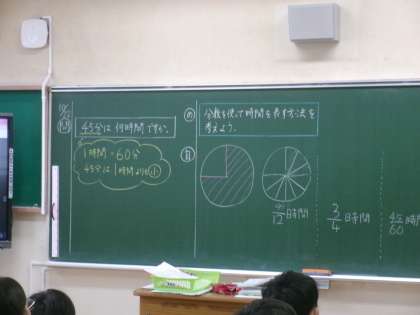 45分は何時間ですか。
1時間=60分
45分は1時間より小
め
分数を使って時間を表す方法を
考えよう。
9/12時間
3/4時間
45/60時間